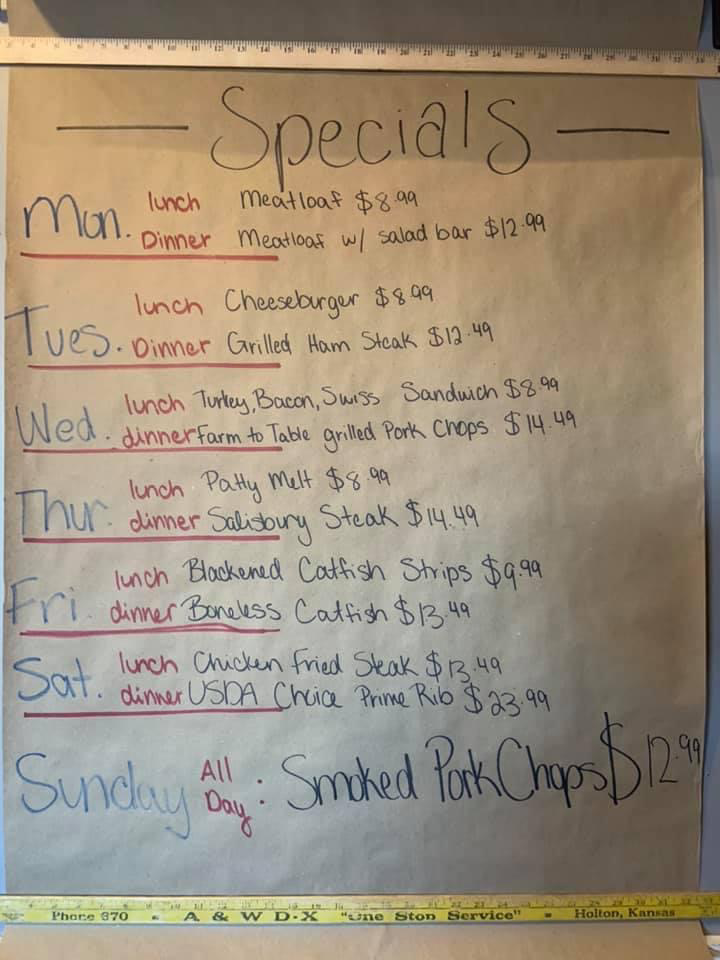 Specials
Mon. lunch Meatloaf $8.99
Dinner Meatloaf w/ salad bar $12.99
Tues. lunch Cheeseburger $8.99
Dinner Grilled Ham Steak $12.49
Wed. lunch Turkey, Bacon, Swiss Sandwich $8.99
dinner Farm to Table grilled Pork Chops $14.49
Thur. lunch Patty Melt $8.99
dinner Salisbury Steak $14.49
Fri. lunch Blackened Catfish Strips $9.99
dinner Boneless Catfish $13.49
Sat. lunch Chicken Fried Steak $13.49
dinner USDA Choice Prime Rib $23.99
Sunday All Day: Smoked Pork Chops $12.99
Phone 370 - A & W D-X "One Stop Service" - Holton, Kansas